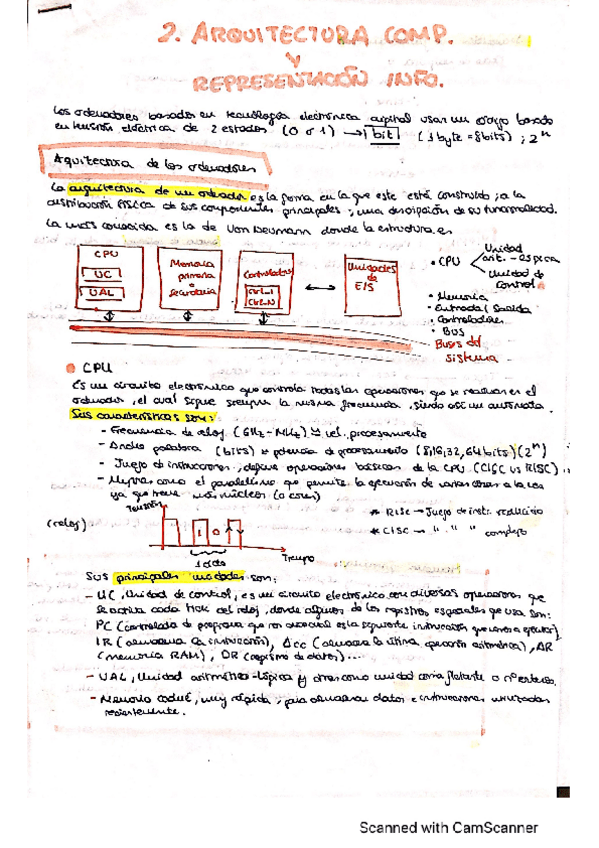 2. ARQUITECTURA COMP.
Y
REPRESENTACIÓN INFO.
Los ordenadores basados en tecnología electrónica digital usan un código basado
en tensión eléctrica de 2 estados (0 o 1) → 1 bit (1 byte = 8bits) ; 2^n
Arquitectura de los ordenadores
La arquitectura de un ordenador es la forma en la que este está construido ; a la
distribución física de sus componentes principales ; una descripción de su funcionalidad.
La más conocida es la de Von Neumann donde la estructura es
CPU
UC
UAL
Memoria
primaria
o
secundaria
Controladores
Ctrl_1
Ctrl_N
Unidades
de
E/S
• CPU
Unidad
arit. -
Unidad de
control
• Memoria
• Entrada / Salida
• Controladores
• Bus
Buses del
sistema
• CPU
Es un circuito electrónico que controla todas las operaciones que se realizan en el
ordenador, el cual sigue siempre la misma frecuencia, siendo así un autómata.
Sus características son:
- Frecuencia de reloj (GHz - MHz) ≈ vel. procesamiento
- Ancho palabra (bits) ≈ potencia de procesamiento (8,16,32,64 bits) (2^n)
- Juego de instrucciones, define operaciones básicas de la CPU (CISC vs RISC)
- Mejoras como el paralelismo que permite la ejecución de varias a la vez
ya que tiene núcleos (o cores)
Tensión
* RISC → Juego de instr. reducido
(reloj)
1 0
* CISC → " " " complejo
1 ciclo
Tiempo
Sus principales unidades son:
- UC, Unidad de control, es un circuito electrónico con diversas operaciones que
se activa cada tick del reloj, donde algunos de los registros especiales que usa son:
PC (contador de programa que va a la siguiente instrucción que a ejecutar),
IR (almacena la instrucción), Acc (almacena la última operación aritmética), AR
(memoria RAM), DR (registro de datos)...
- UAL, Unidad aritmético-lógica y otras como unidad coma flotante o nº enteros.
- Memoria caché, muy rápida, para almacenar datos e instrucciones utilizadas
recientemente.
Scanned with CamScanner